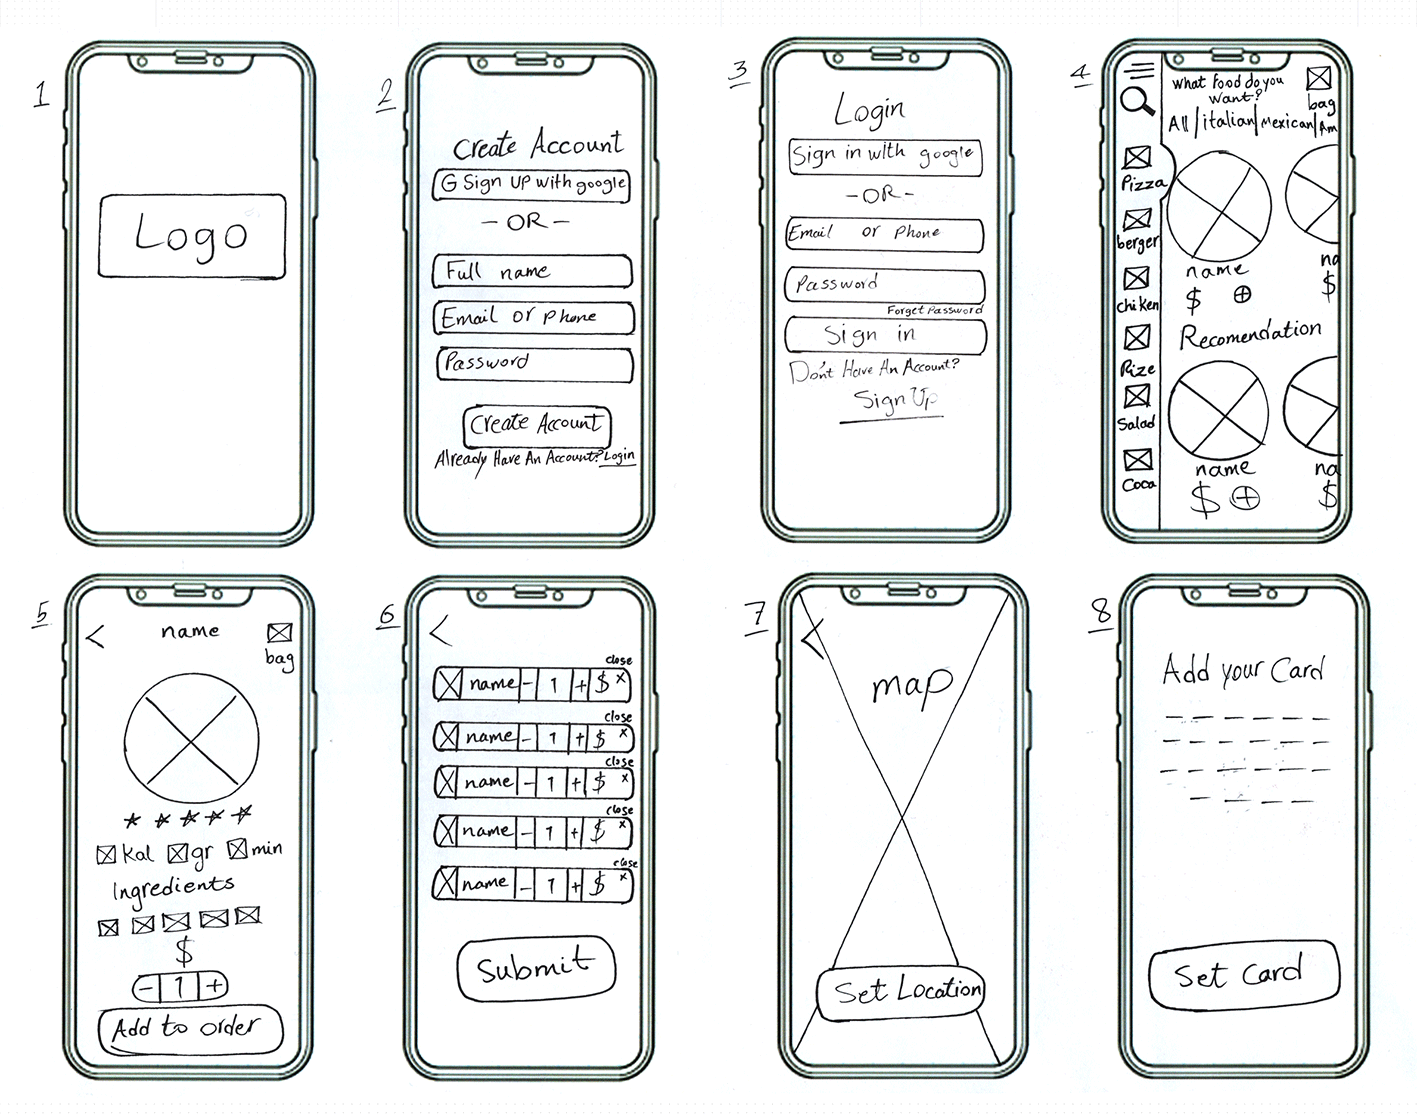 1
Logo
2
Create Account
G Sign UP with google
- OR -
Full name
Email or phone
Password
Create Account
Already Have An Account? Login
3
Login
Sign in with google
- OR -
Email or Phone
Password
Forget Password
Sign in
Don't Have An Account?
Sign Up
4
What food do you
want?
bag
All / italian / Mexican / Am
Pizza
berger
chiken
Rize
Salad
Coca
name
$
na
$
Recomendation
name
$
na
$
5
<
name
bag
kal gr min
Ingredients
$
- 1 +
Add to order
6
<
close
name - 1 + $ x
close
name - 1 + $ x
close
name - 1 + $ x
close
name - 1 + $ x
close
name - 1 + $ x
Submit
7
<
map
Set Location
8
Add your Card
Set Card